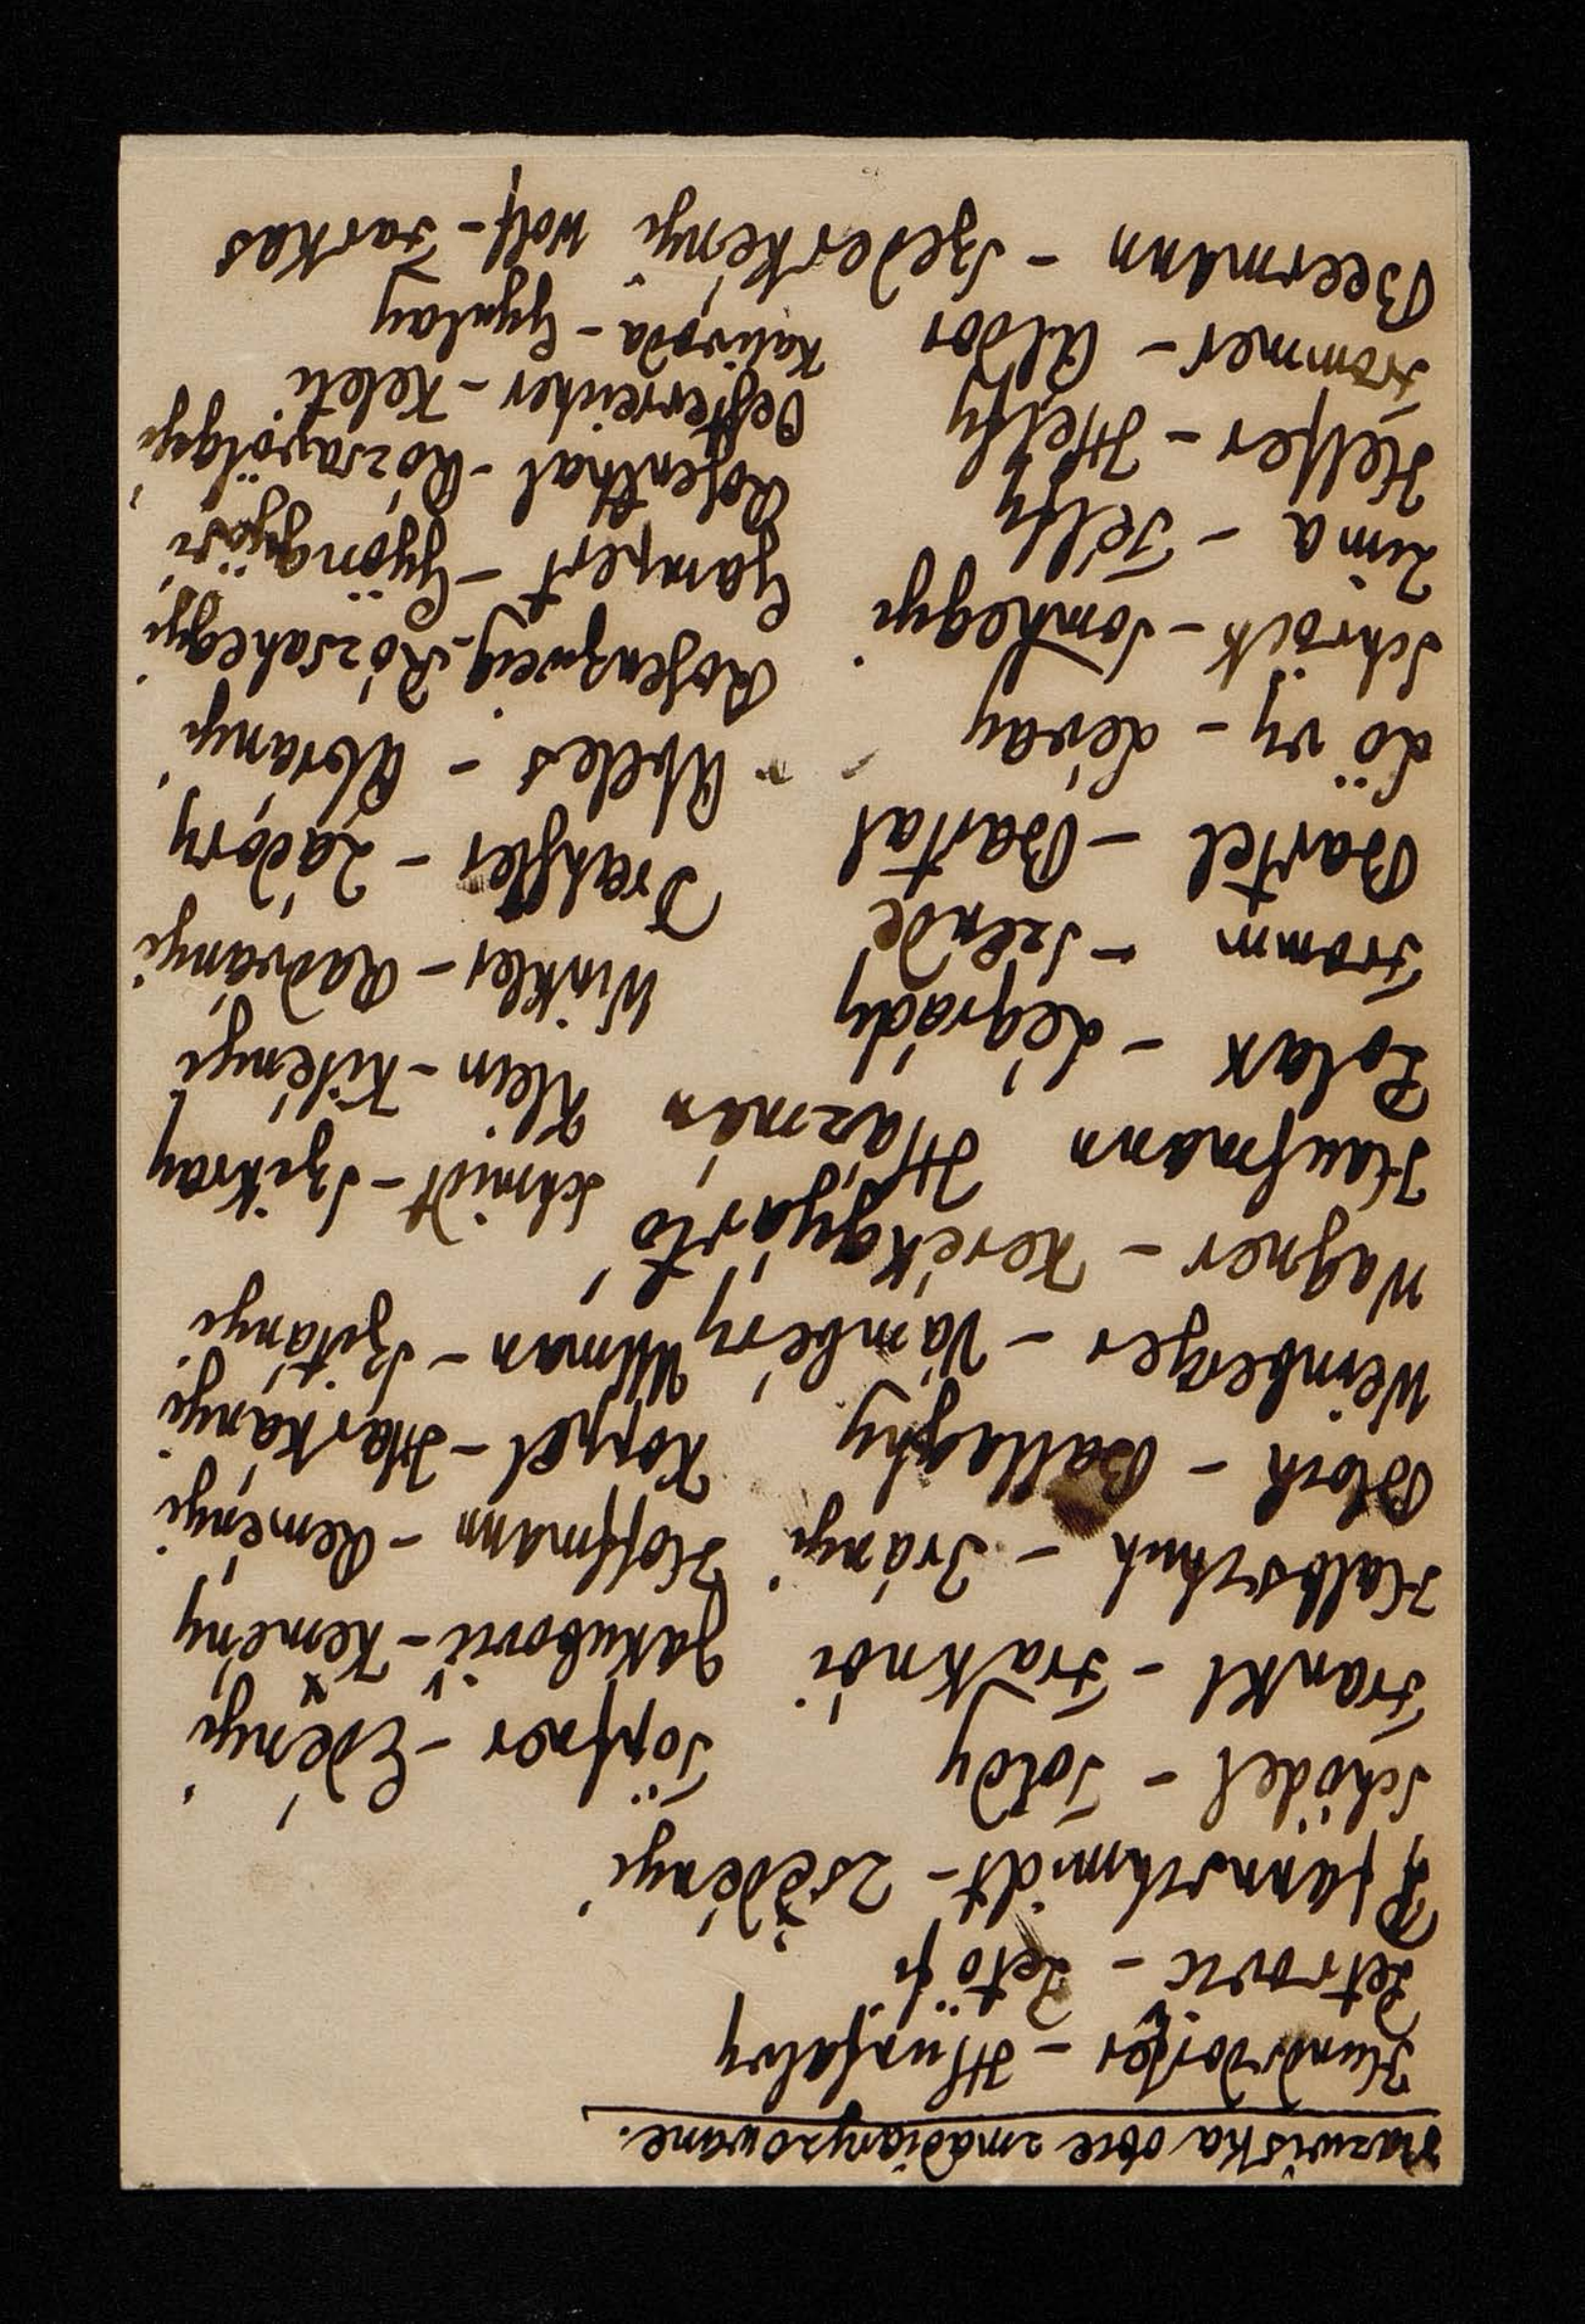 Nazwiska obce zmadiaryzowane.
Hundsdorfer - Hunfalvy
Petrovic - Petöfi
Pfannschmidt - Zsedényi
Schödel - Toldy
Frankl - Fraknói
Halbschuh - Irányi
Bloch - Ballaghy
Weinberger - Vámbéry
Wagner - Kerékgyártó
Haufmann Házmán
Polax - Légrády
Fromm - Szende
Bartel - Bartal
Lövy - Lévay
Schröck - Somhegyi
Zima - Télfy
Helfer - Helfy
Frommer - Aldor
Beermann - Szederkényi
Töpfner - Edényi
Jakubovič - Kemény
Hoffmann - Reményi
Koppel - Harkányi
Ullman - Szitányi
Schmidt - Szikray
Klein - Kilényi
Winkler - Radványi
Drexsler - Zádory
Abeles - Abrányi
Rosenzweig - Rózsahegyi
Gampert - Gyöngyösi
Rosenthal - Rózsavölgyi
Oesterreicher - Keleti
Kalivoda - Gyulay
Wolf - Farkas